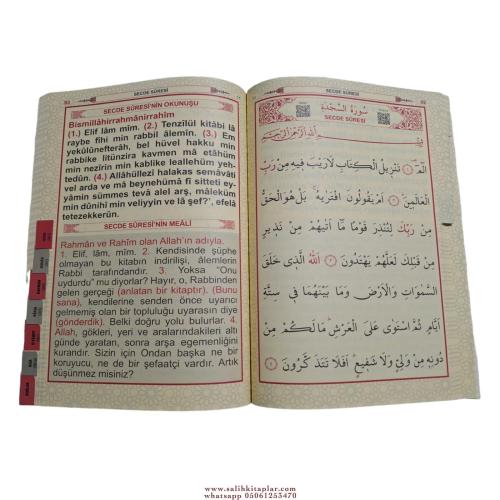 SECDE SÛRESİ
SECDE SÛRESİ'NİN OKUNUŞU
Bismillâhirrahmânirrahîm
(1.) Elif lâm mîm. (2.) Tenzîlül kitâbi lâ
raybe fîhi min rabbil âlemîn. (3.) Em
yekûlûnefterâh, bel hüvel hakku min
rabbike litünzira kavmen mâ etâhüm
min nezîrin min kablike leallehüm yeh-
tedûn. (4.) Allâhüllezî halakas semâvâti
vel arda ve mâ beynehümâ fî sitteti ey-
yâmin sümmes tevâ alel arş, mâleküm
min dûnihî min veliyyin ve lâ şefî', efelâ
tetezekkerûn.
SECDE SÛRESİ'NİN MEÂLİ
Rahmân ve Rahîm olan Allah'ın adıyla.
1. Elif, lâm, mîm. 2. Kendisinde şüphe
olmayan bu kitabın indirilişi, âlemlerin
Rabbi tarafındandır. 3. Yoksa "Onu
uydurdu" mu diyorlar? Hayır, o, Rabbinden
gelen gerçeği (anlatan bir kitaptır). (Bunu
sana), kendilerine senden önce uyarıcı
gelmemiş olan bir topluluğu uyarasın diye
(gönderdik). Belki doğru yolu bulurlar. 4.
Allah, gökleri, yeri ve aralarındakileri altı
günde yaratan, sonra arşa egemenliğini
kurandır. Sizin için Ondan başka ne bir
koruyucu, ne de bir şefaatçi vardır. Artık
düşünmez misiniz?
SECDE SÛRESİ
سُورَةُ السَّجْدَةِ
SECDE SÛRESİ
بِسْمِ اللّٰهِ الرَّحْمٰنِ الرَّحِيمِ
الٓمٓ ﴿١﴾ تَنْزِيلُ الْكِتَابِ لَا رَيْبَ فِيهِ مِنْ رَبِّ
الْعَالَمِينَ ﴿٢﴾ اَمْ يَقُولُونَ افْتَرٰيهُ بَلْ هُوَ الْحَقُّ
مِنْ رَبِّكَ لِتُنْذِرَ قَوْمًا مَا اَتٰيهُمْ مِنْ نَذِيرٍ
مِنْ قَبْلِكَ لَعَلَّهُمْ يَهْتَدُونَ ﴿٣﴾ اَللّٰهُ الَّذِى خَلَقَ
السَّمٰوَاتِ وَالْاَرْضَ وَمَا بَيْنَهُمَا فِى سِتَّةِ
اَيَّامٍ ثُمَّ اسْتَوٰى عَلَى الْعَرْشِ مَا لَكُمْ مِنْ
دُونِهِ مِنْ وَلِىٍّ وَلَا شَفِيعٍ اَفَلَا تَتَذَكَّرُونَ ﴿٤﴾
www.salihkitaplar.com
whatsapp 05061253470